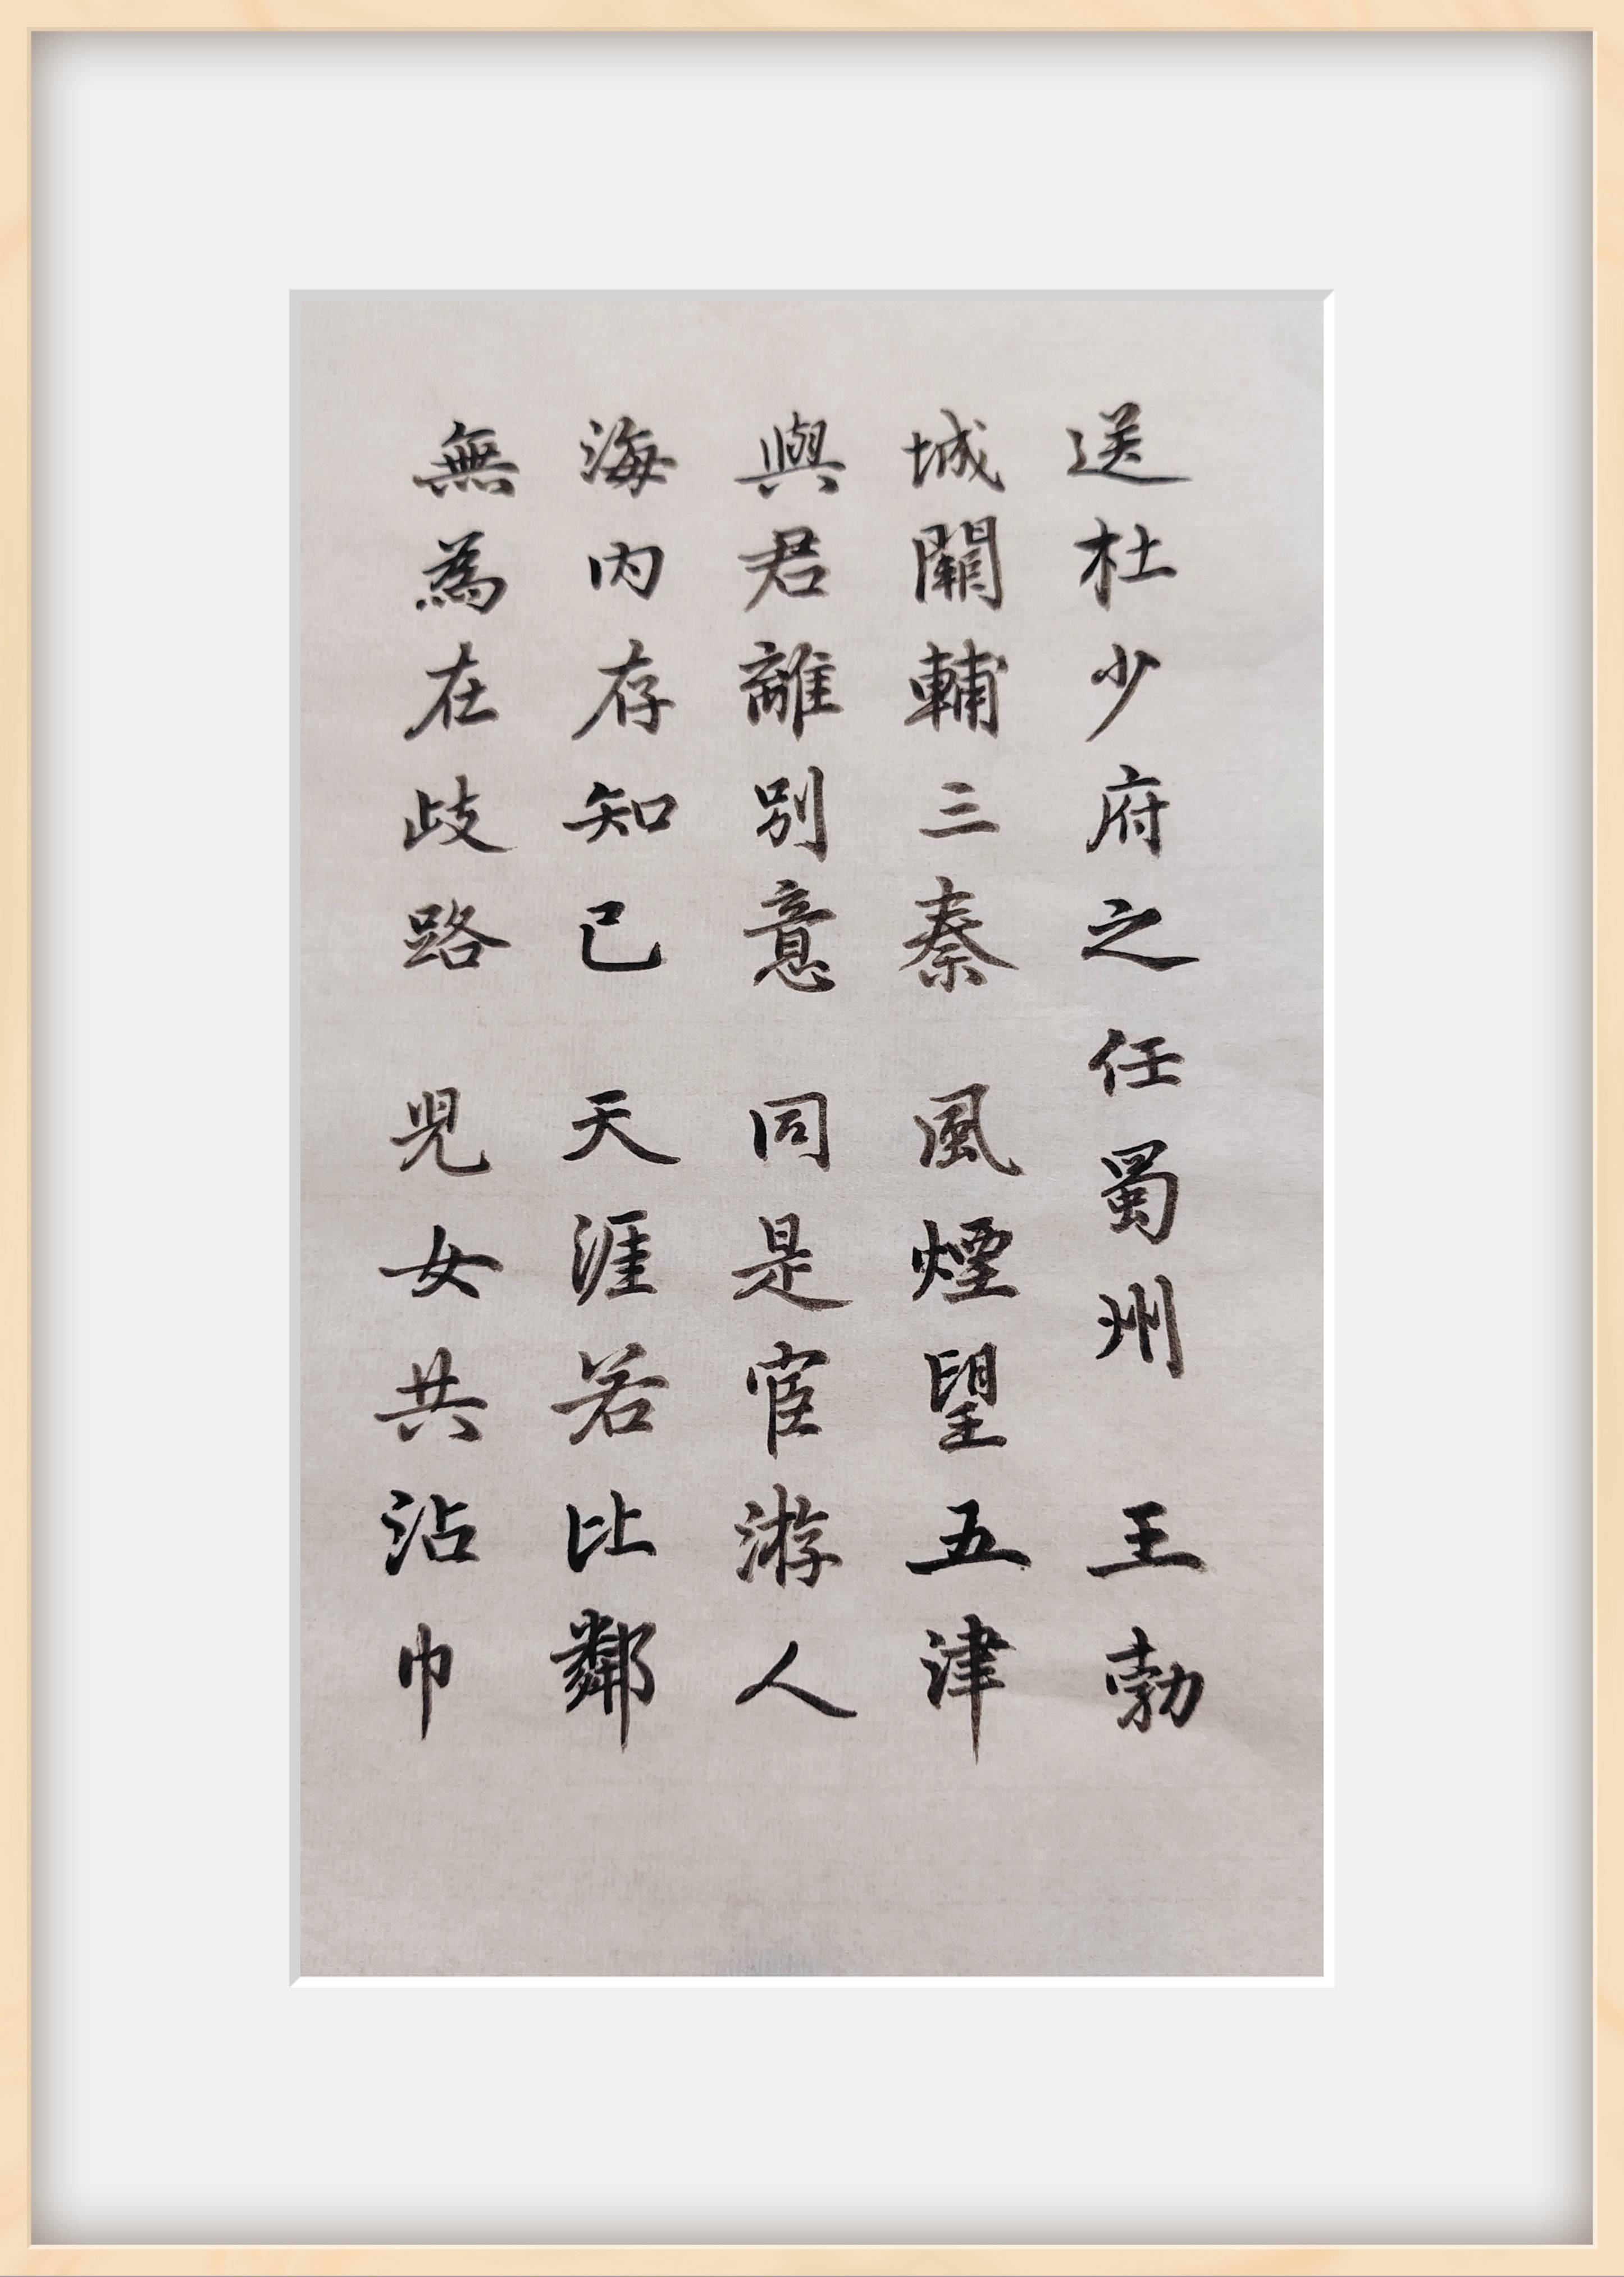 送杜少府之任蜀州 王勃
城闕輔三秦 風煙望五津
與君離別意 同是宦游人
海内存知己 天涯若比鄰
無為在歧路 兒女共沾巾